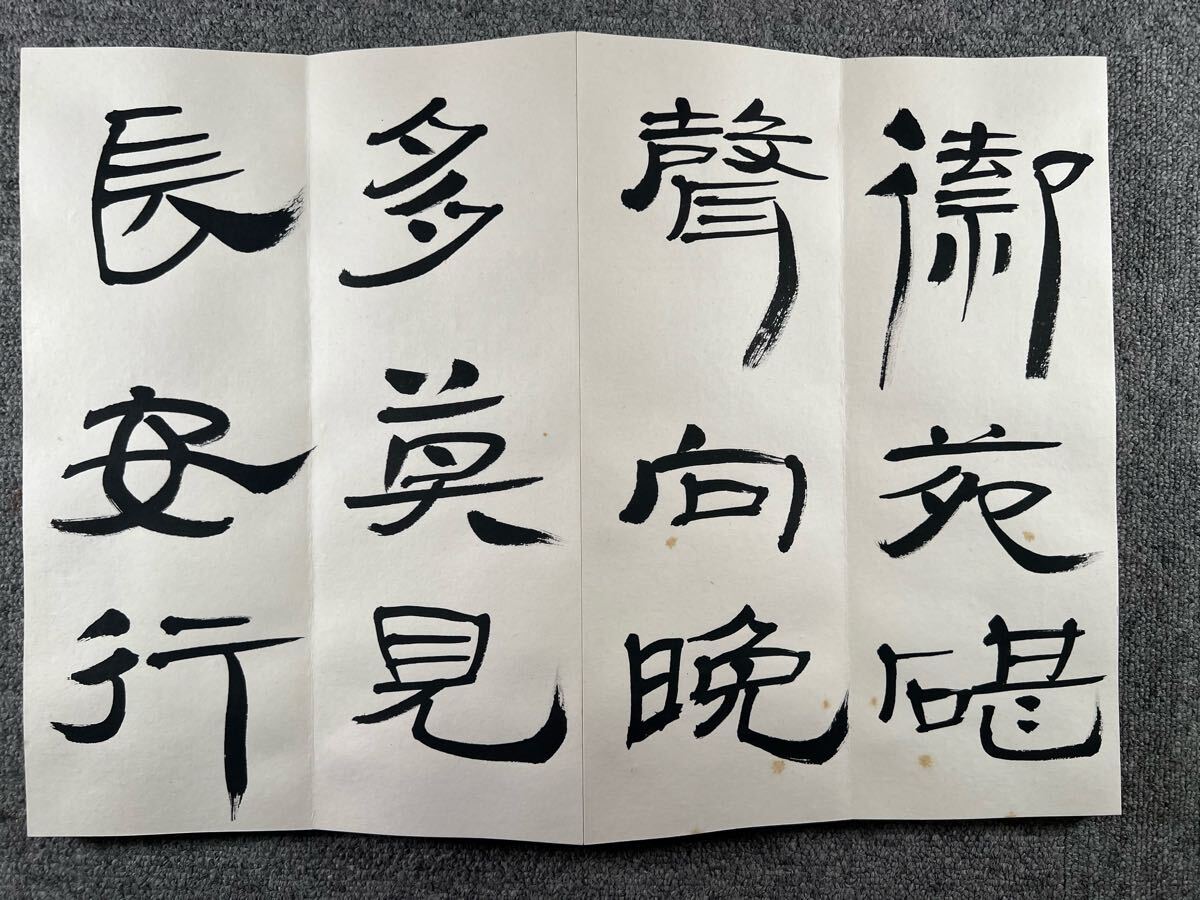 禦苑碪
聲向晚
多莫見
長安行